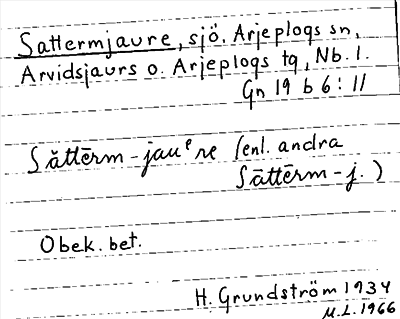 Sattermjaure, sjö. Arjeplogs sn,
Arvidsjaurs o. Arjeplogs tg, Nb. l.
Gn 19 b 6:11
Săttērm-jauᵉre (enl. andra
Sāttērm-j.)
Obek. bet.
H. Grundström 1934
M.L. 1966